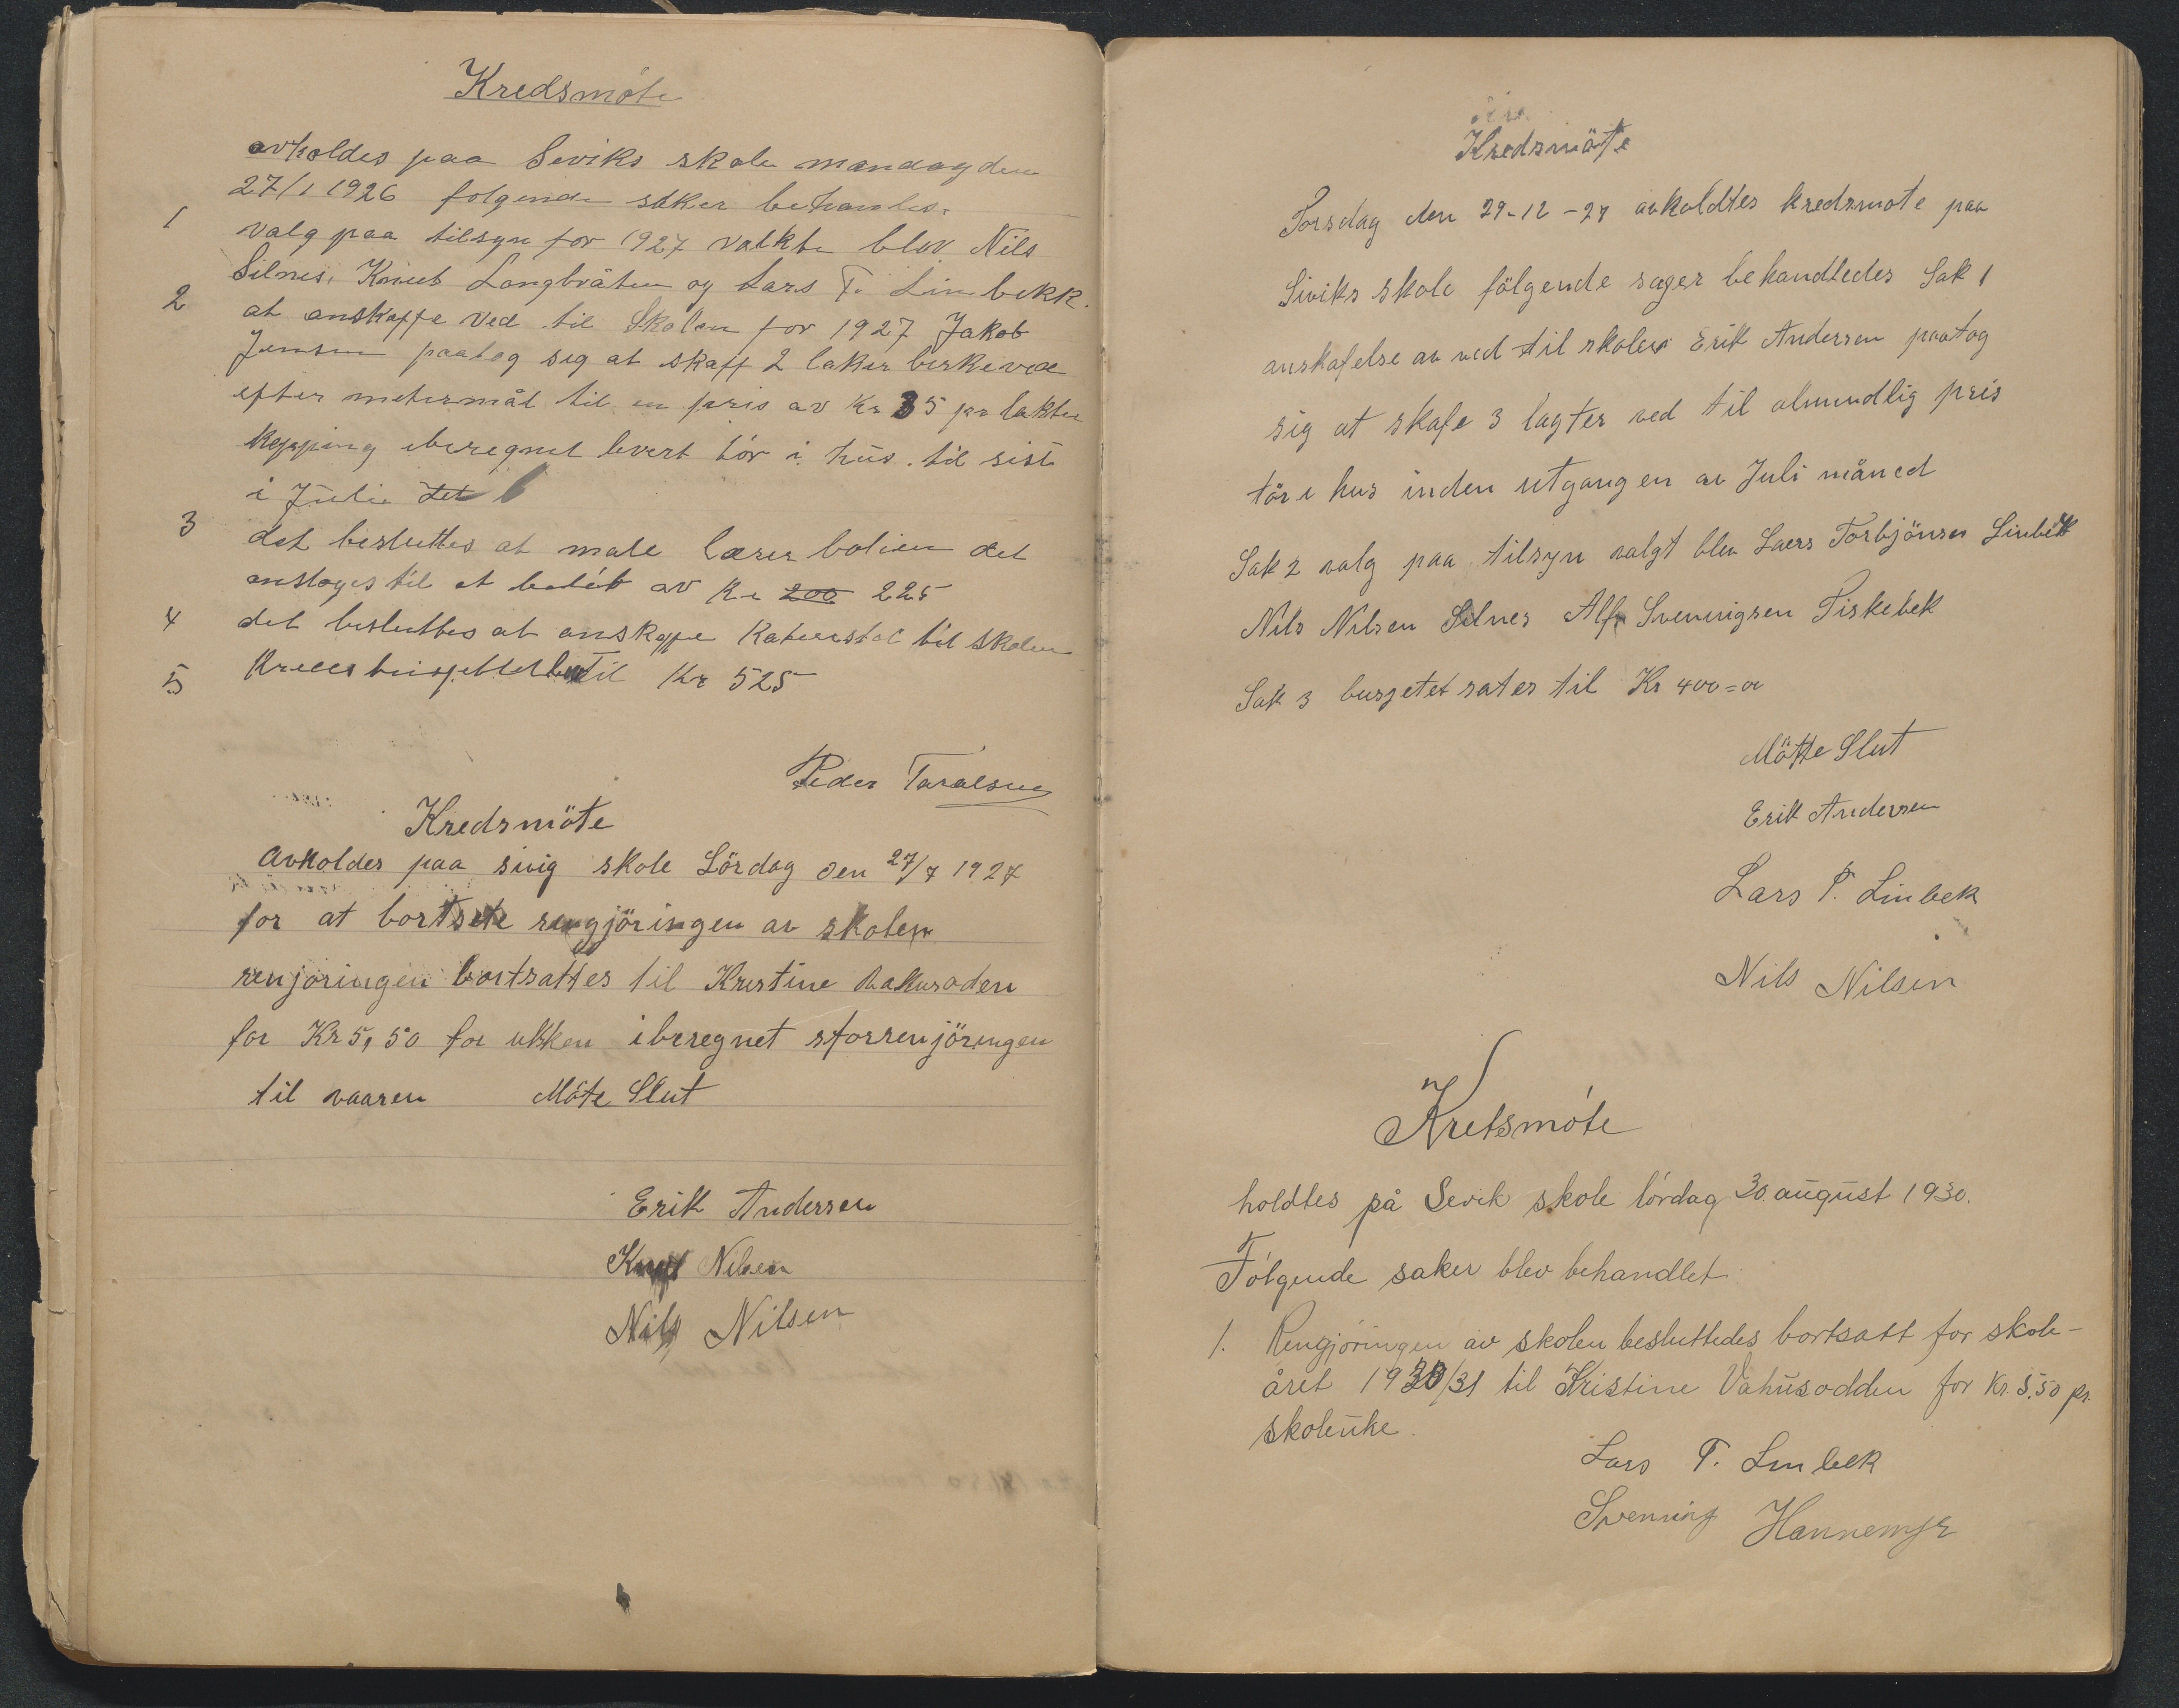 Kredsmöte
avholdes paa Seviks skole mandag den
27/1 1926 folgende saker behanles.
1 valg paa tilsyn for 1927 valkte blev Nils
Silnes, Knut Langbråten og Lars T. Linbekk.
2 at anskaffe ved til Skolen for 1927 Jakob
Jensen paatog sig at skaff 2 lakter birkeved
efter metermål til en pris av Kr 35 pr lakter
Kapping iberegnet levert tör i hus. til sist
i Julie det
3 det besluttes at male lærer bolien det
anstoges til et belöb av Kr 200 225
4 det besluttes at anskaffe Kateristol til skolen
5 Kreds busjettet til Kr 525
Peder Taralsen
Kredsmöte
Avholdes paa sivig skole Lördag den 27/7 1927
for at bortsete rengjöringen av skolen
renjöringen bortsattes til Kristine Vakusoden
for Kr 5,50 for ukken iberegnet storrenjöringen
til vaaren Möte Slut
Erik Andersen
Knut Nilsen
Nils Nilsen
Kredsmöte
Torsdag den 29-12-27 avholdtes kredsmote paa
Siviks skole fölgende sager behandledes Sak 1
anskafelse av ved til skolen Erik Andersen paatog
sig at skafe 3 lagter ved til almindlig pris
tör i hus inden utgangen av Juli måned
Sak 2 valg paa tilsyn valgt blev Laers Torbjönsen Linbek
Nils Nilsen Silnes Alf Svenningsen Fiskebek
Sak 3 busjetet sates til Kr 400=00
Mötte Slut
Erik Andersen
Lars T. Linbek
Nils Nilsen
Kretsmöte
holdtes på Sevik skole lördag 30. august 1930.
Fölgende saker blev behandlet
1. Rengjöringen av skolen besluttedes bortsatt for skole-
året 1930/31 til Kristine Vahusodden for Kr. 5,50 pr.
skoleuke.
Lars T. Linbek
Svenning Hannemyr